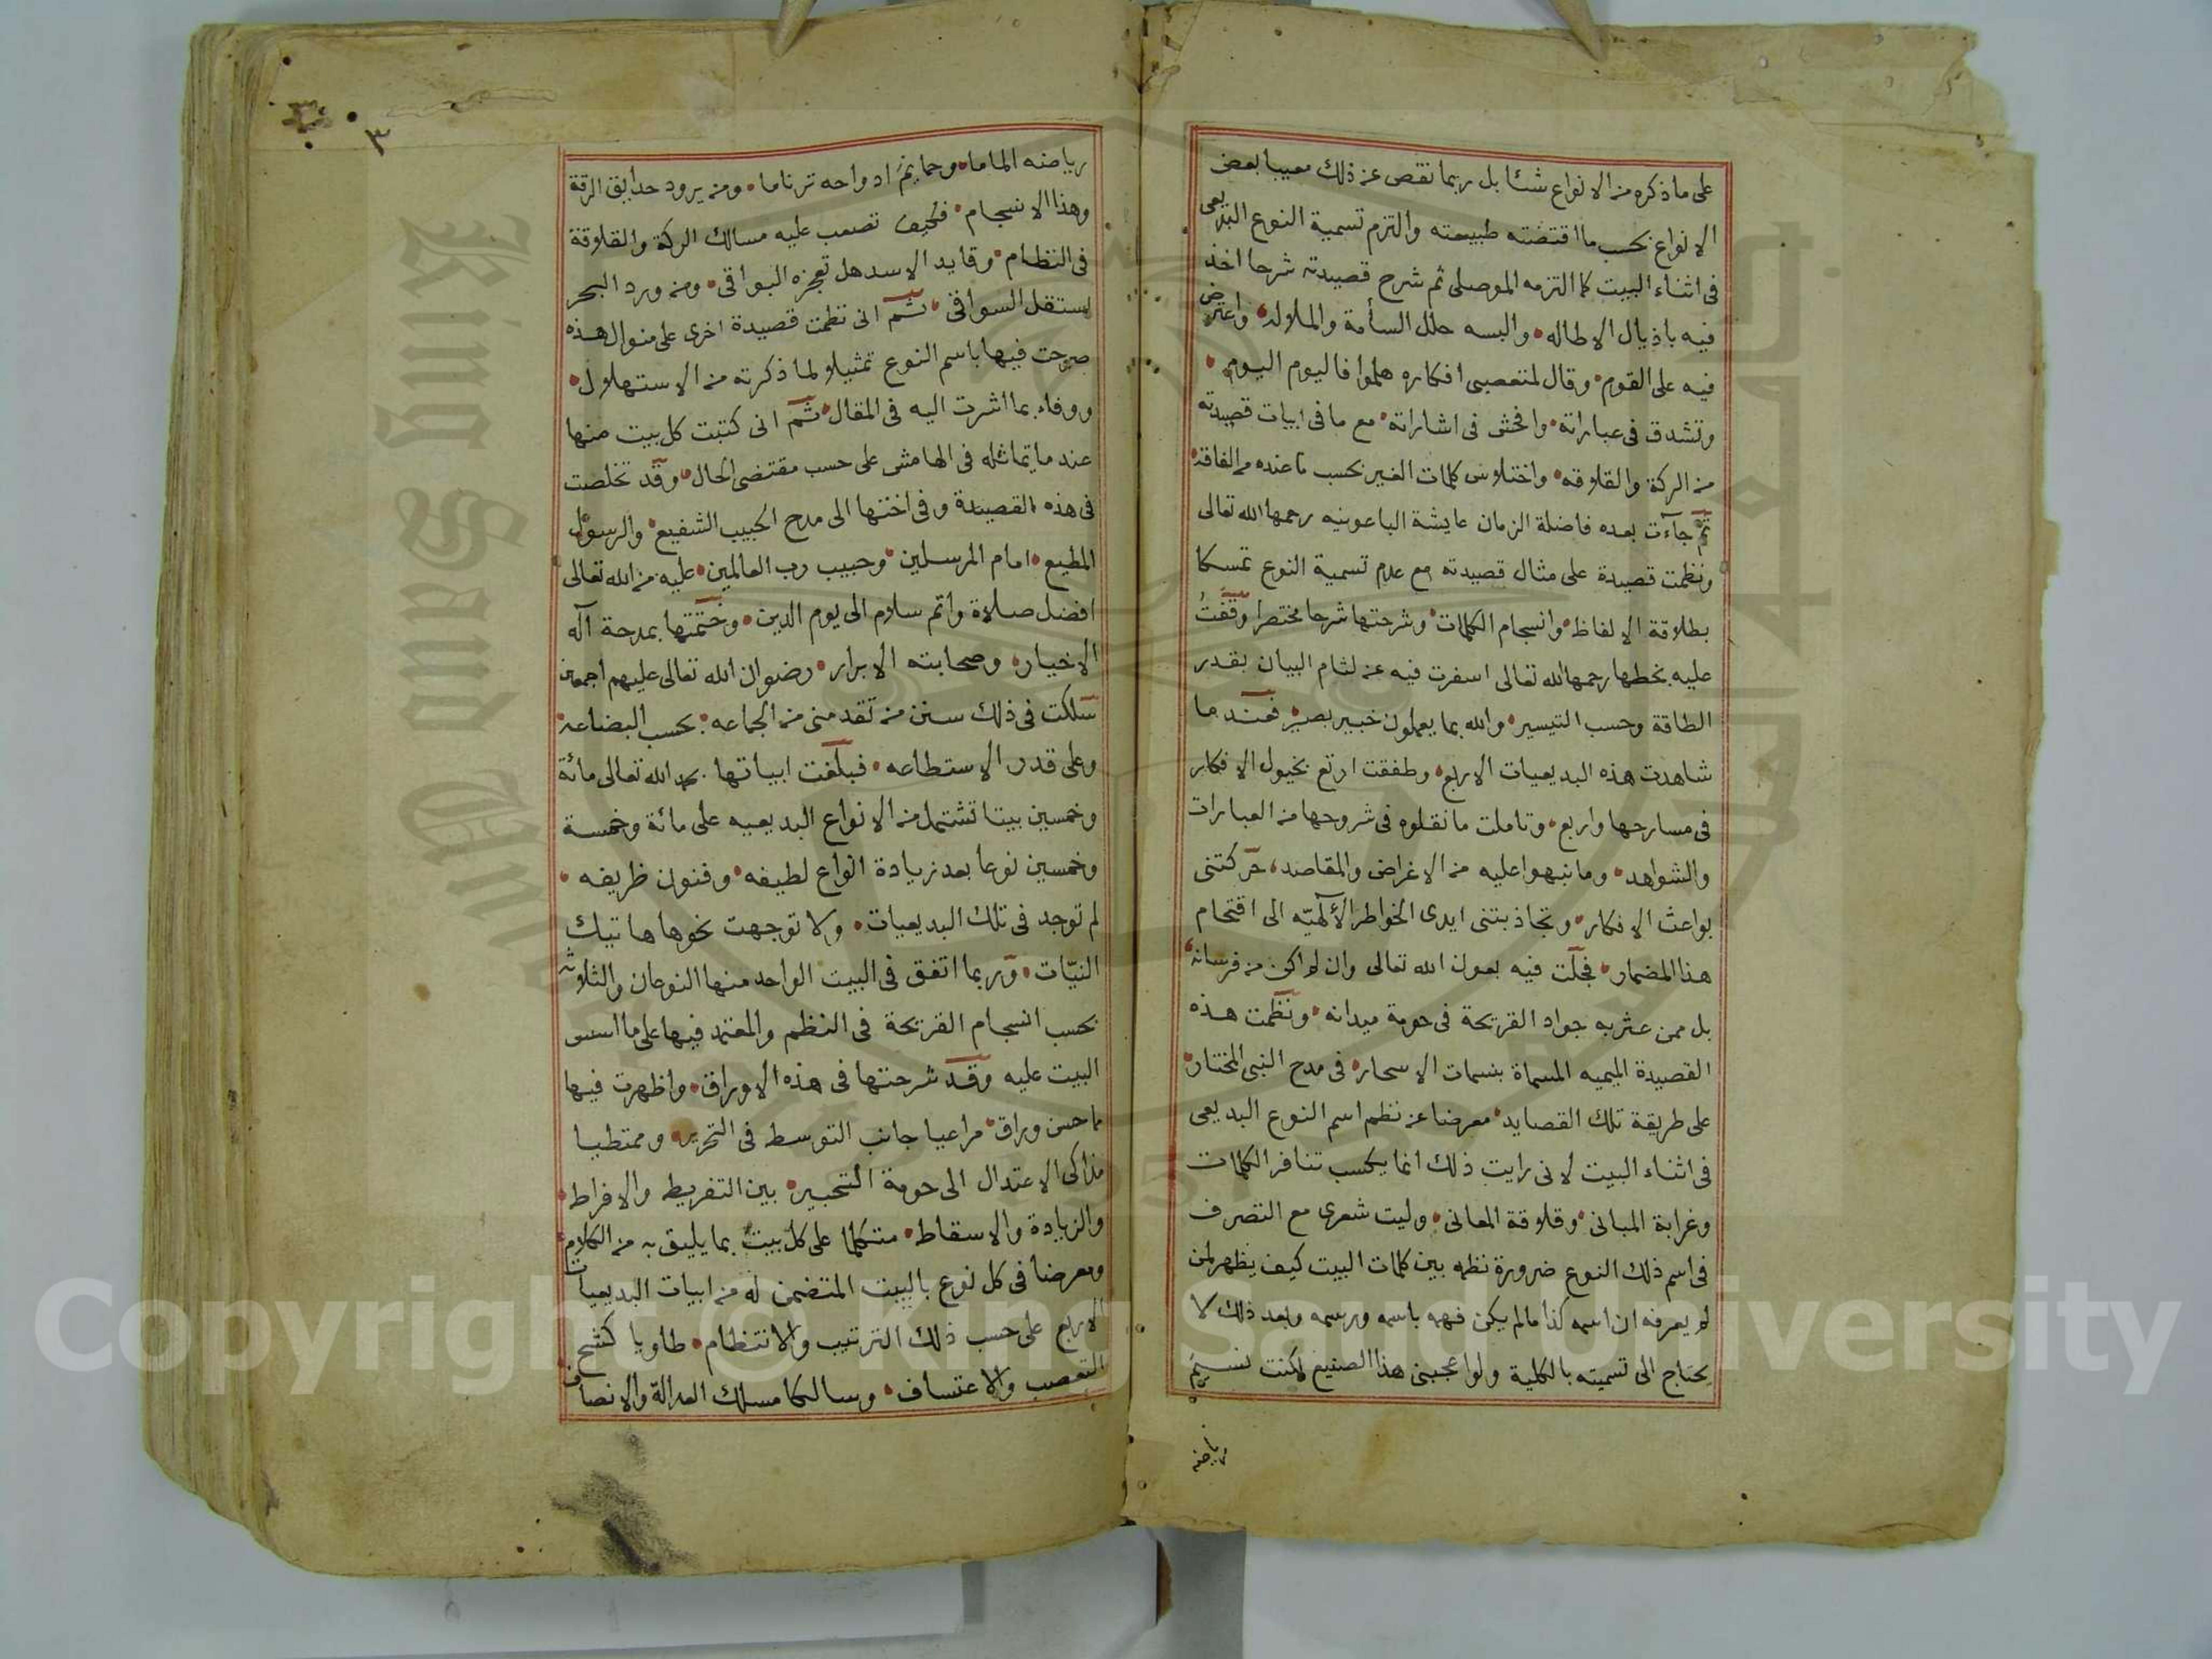 على ما ذكره من الانواع شئا بل ربما نقص عن ذلك معيبا بعض
الانواع بحسب ما اقتضته طبيعته والتزم تسمية النوع البديعى
فى اثناء البيت كما التزمه الموصلى ثم شرح قصيدته شرحا اخذ
فيه باذيال الاطاله والبسه حلل السأمة والملاله واعترض
فيه على القوم وقال لمتعصبى افكاره هلموا فاليوم اليوم
وتشدق فى عباراته وافحش فى اشاراته مع ما فى ابيات قصيدته
من الركة والقلاقه واختلاس كلمات الغير بحسب ما عنده من الفاقه
ثم جاءت بعده فاضلة الزمان عايشة الباعونيه رحمها الله تعالى
ونظمت قصيدة على مثال قصيدته مع عدم تسمية النوع تمسكا
بطلاقة الالفاظ وانسجام الكلمات وشرحتها شرحا مختصرا وقفت
عليه بخطها رحمها الله تعالى اسفرت فيه عن لثام البيان بقدر
الطاقة وحسب التيسير والله بما يعملون خبير بصير فعند ما
شاهدت هذه البديعيات الاربع وطفقت ارتع بخيول الافكار
فى مسارحها واربع وتاملت ما نقلوه فى شروحها من العبارات
والشواهد وما نبهوا عليه من الاغراض والمقاصد حركتنى
بواعث الافكار وتجاذبتنى ايدى الخواطر الآلهيّه الى اقتحام
هذا المضمار فجلت فيه بعون الله تعالى وان لم اكن من فرسانه
بل ممن عثر به جواد القريحة فى حومة ميدانه ونظمت هذه
القصيدة الميميه المسماة بنسمات الاسحار فى مدح النبى المختار
على طريقة تلك القصايد معرضا عن نظم اسم النوع البديعى
فى اثناء البيت لانى رايت ذلك انما يكسب تنافر الكلمات
وغرابة المبانى وقلاقة المعانى وليت شعرى مع التصرف
فى اسم ذلك النوع ضرورة نظمه بين كلمات البيت كيف يظهر لمن
لم يعرفه ان اسمه كذا ما لم يكن فهمه باسمه ورسمه وبعد ذلك لا
يحتاج الى تسميته بالكلية ولو اعجبنى هذا الصنيع لكنت نسيم
رياضه
٣
رياضه الماما وحمايم ادواحه ترناما ومن يرود حدايق الرقة
وهذا الانسجام فكيف تصعب عليه مسالك الركة والقلاقة
فى النظام وقايد الاسد هل تعجزه البواقى ومن ورد البحر
استقل السواقى ثم انى نظمت قصيدة اخرى على منوال هذه
صرحت فيها باسم النوع تمثيلا لما ذكرته من الاستهلال
ووفاء بما اشرت اليه فى المقال ثم انى كتبت كل بيت منها
عند ما يماثله فى الهامش على حسب مقتضى الحال وقد تخلصت
فى هذه القصيدة وفى اختها الى مدح الحبيب الشفيع والرسول
المطيع امام المرسلين وحبيب رب العالمين عليه من الله تعالى
افضل صلاة واتم سلام الى يوم الدين وختمتها بمدحة آله
الاخيار وصحابته الابرار رضوان الله تعالى عليهم اجمعين
سلكت فى ذلك سنن من تقدمنى من الجماعه بحسب البضاعه
وعلى قدر الاستطاعه فبلغت ابياتها بحمد الله تعالى مائة
وخمسين بيتا تشتمل من الانواع البديعيه على مائة وخمسة
وخمسين نوعا بعد زيادة انواع لطيفه وفنون ظريفه
لم توجد فى تلك البديعيات ولا توجهت نحوها هاتيك
النيّات وربما اتفق فى البيت الواحد منها النوعان والثلاثه
بحسب انسجام القريحة فى النظم والمعتمد فيها على ما اسس
البيت عليه وقد شرحتها فى هذه الاوراق واظهرت فيها
ما حسن وراق مراعيا جانب التوسط فى التحرير وممتطيا
مذاكى الاعتدال الى حومة التحبير بين التفريط والافراط
والزيادة والاسقاط متكلما على كل بيت بما يليق به من الكلام
ومعرضا فى كل نوع بالبيت المتضمن له من ابيات البديعيات
الاربع على حسب ذلك الترتيب والانتظام طاويا كشح
التعصب والاعتساف وسالكا مسلك العدالة والانصاف
King Saud
Copyright © King Saud University